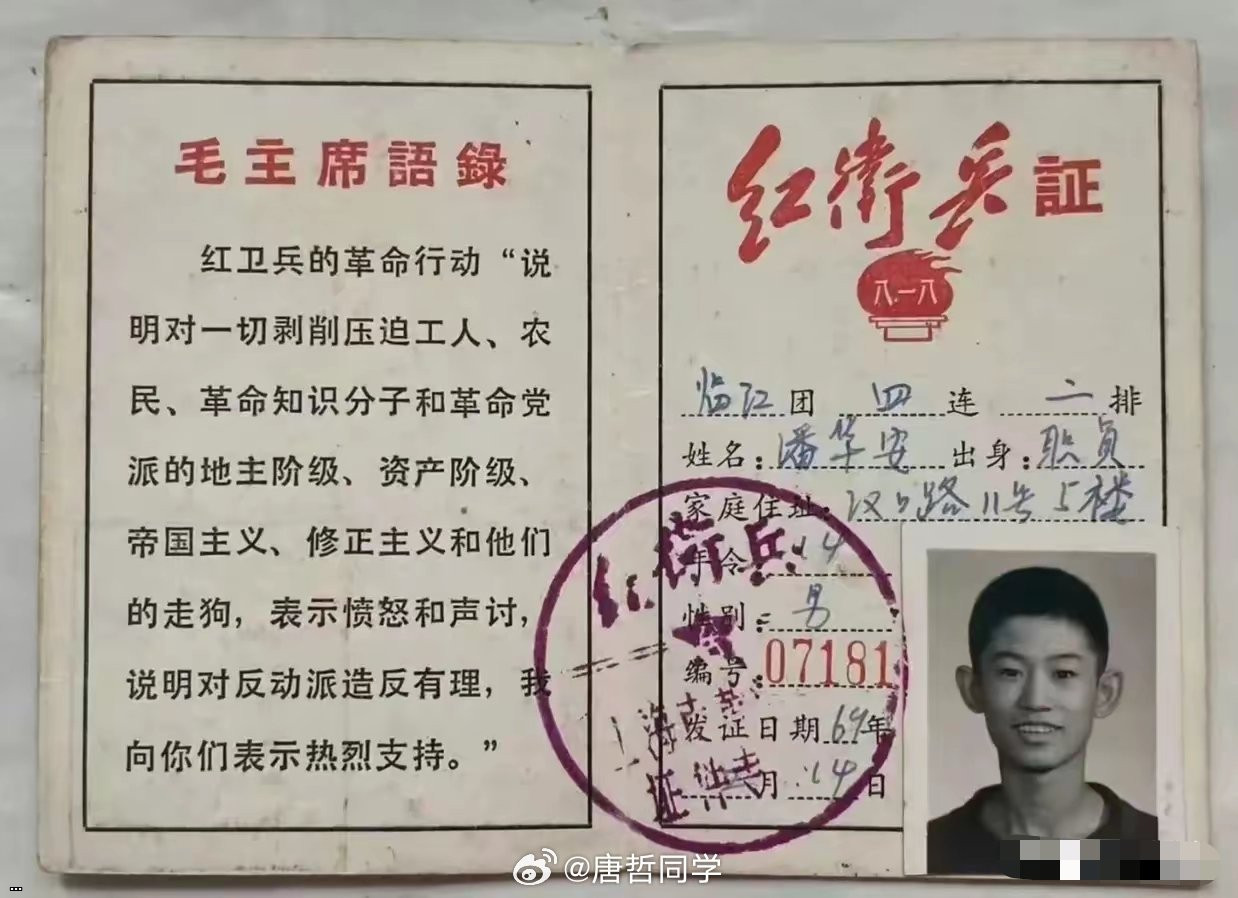 毛主席語錄
红卫兵的革命行动“说
明对一切剥削压迫工人、农
民、革命知识分子和革命党
派的地主阶级、资产阶级、
帝国主义、修正主义和他们
的走狗，表示愤怒和声讨，
说明对反动派造反有理，我
向你们表示热烈支持。”
红衛兵証
八一八
临江团 四连 二排
姓名：潘华安 出身：职员
家庭住址：汉口路11号5楼
年令：14
性别：男
编号：07181
发证日期69年
月14日
红衛兵
上海
证件专
@唐哲同学